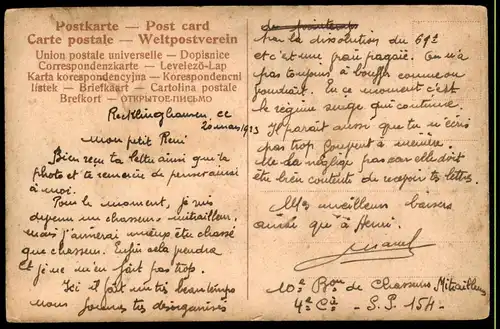 Postkarte — Post card
Carte postale — Weltpostverein
Union postale universelle — Dopisnice
Correspondenzkarte — Levelező-Lap
Karta korespondencyjna — Korespondencni
listek — Briefkaart — Cartolina postale
Brefkort — ОТКРЫТОЕ ПИСЬМО
Recklinghausen, ce
20 mars 1923
Mon petit René
Bien reçu ta lettre ainsi que ta
photo et te remercie de penser aussi
à moi.
Pour le moment, je suis
devenu un chasseur mitrailleur,
mais j'aimerai mieux être chassé
que chasseur. Enfin cela viendra
et je ne m'en fait pas trop.
Ici il fait un très beau temps
nous sommes très désorganisés
par la dissolution du 69e
et c'est une vraie pagaie. On n'a
pas toujours à bouffer comme on
voudrait. En ce moment c'est
le régime singe qui continue.
Il parait aussi que tu n'écris
pas trop souvent à
Ne la néglige pas car elle doit
être bien contente de recevoir tes lettres.
Mes meilleurs baisers
ainsi que à Henri.
Marcel
10e Bon de Chasseurs Mitrailleurs
4e Cie - S.P. 154 -